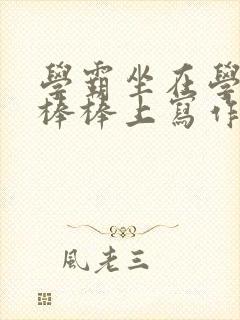 學霸坐在學
棒棒上寫作
風老三